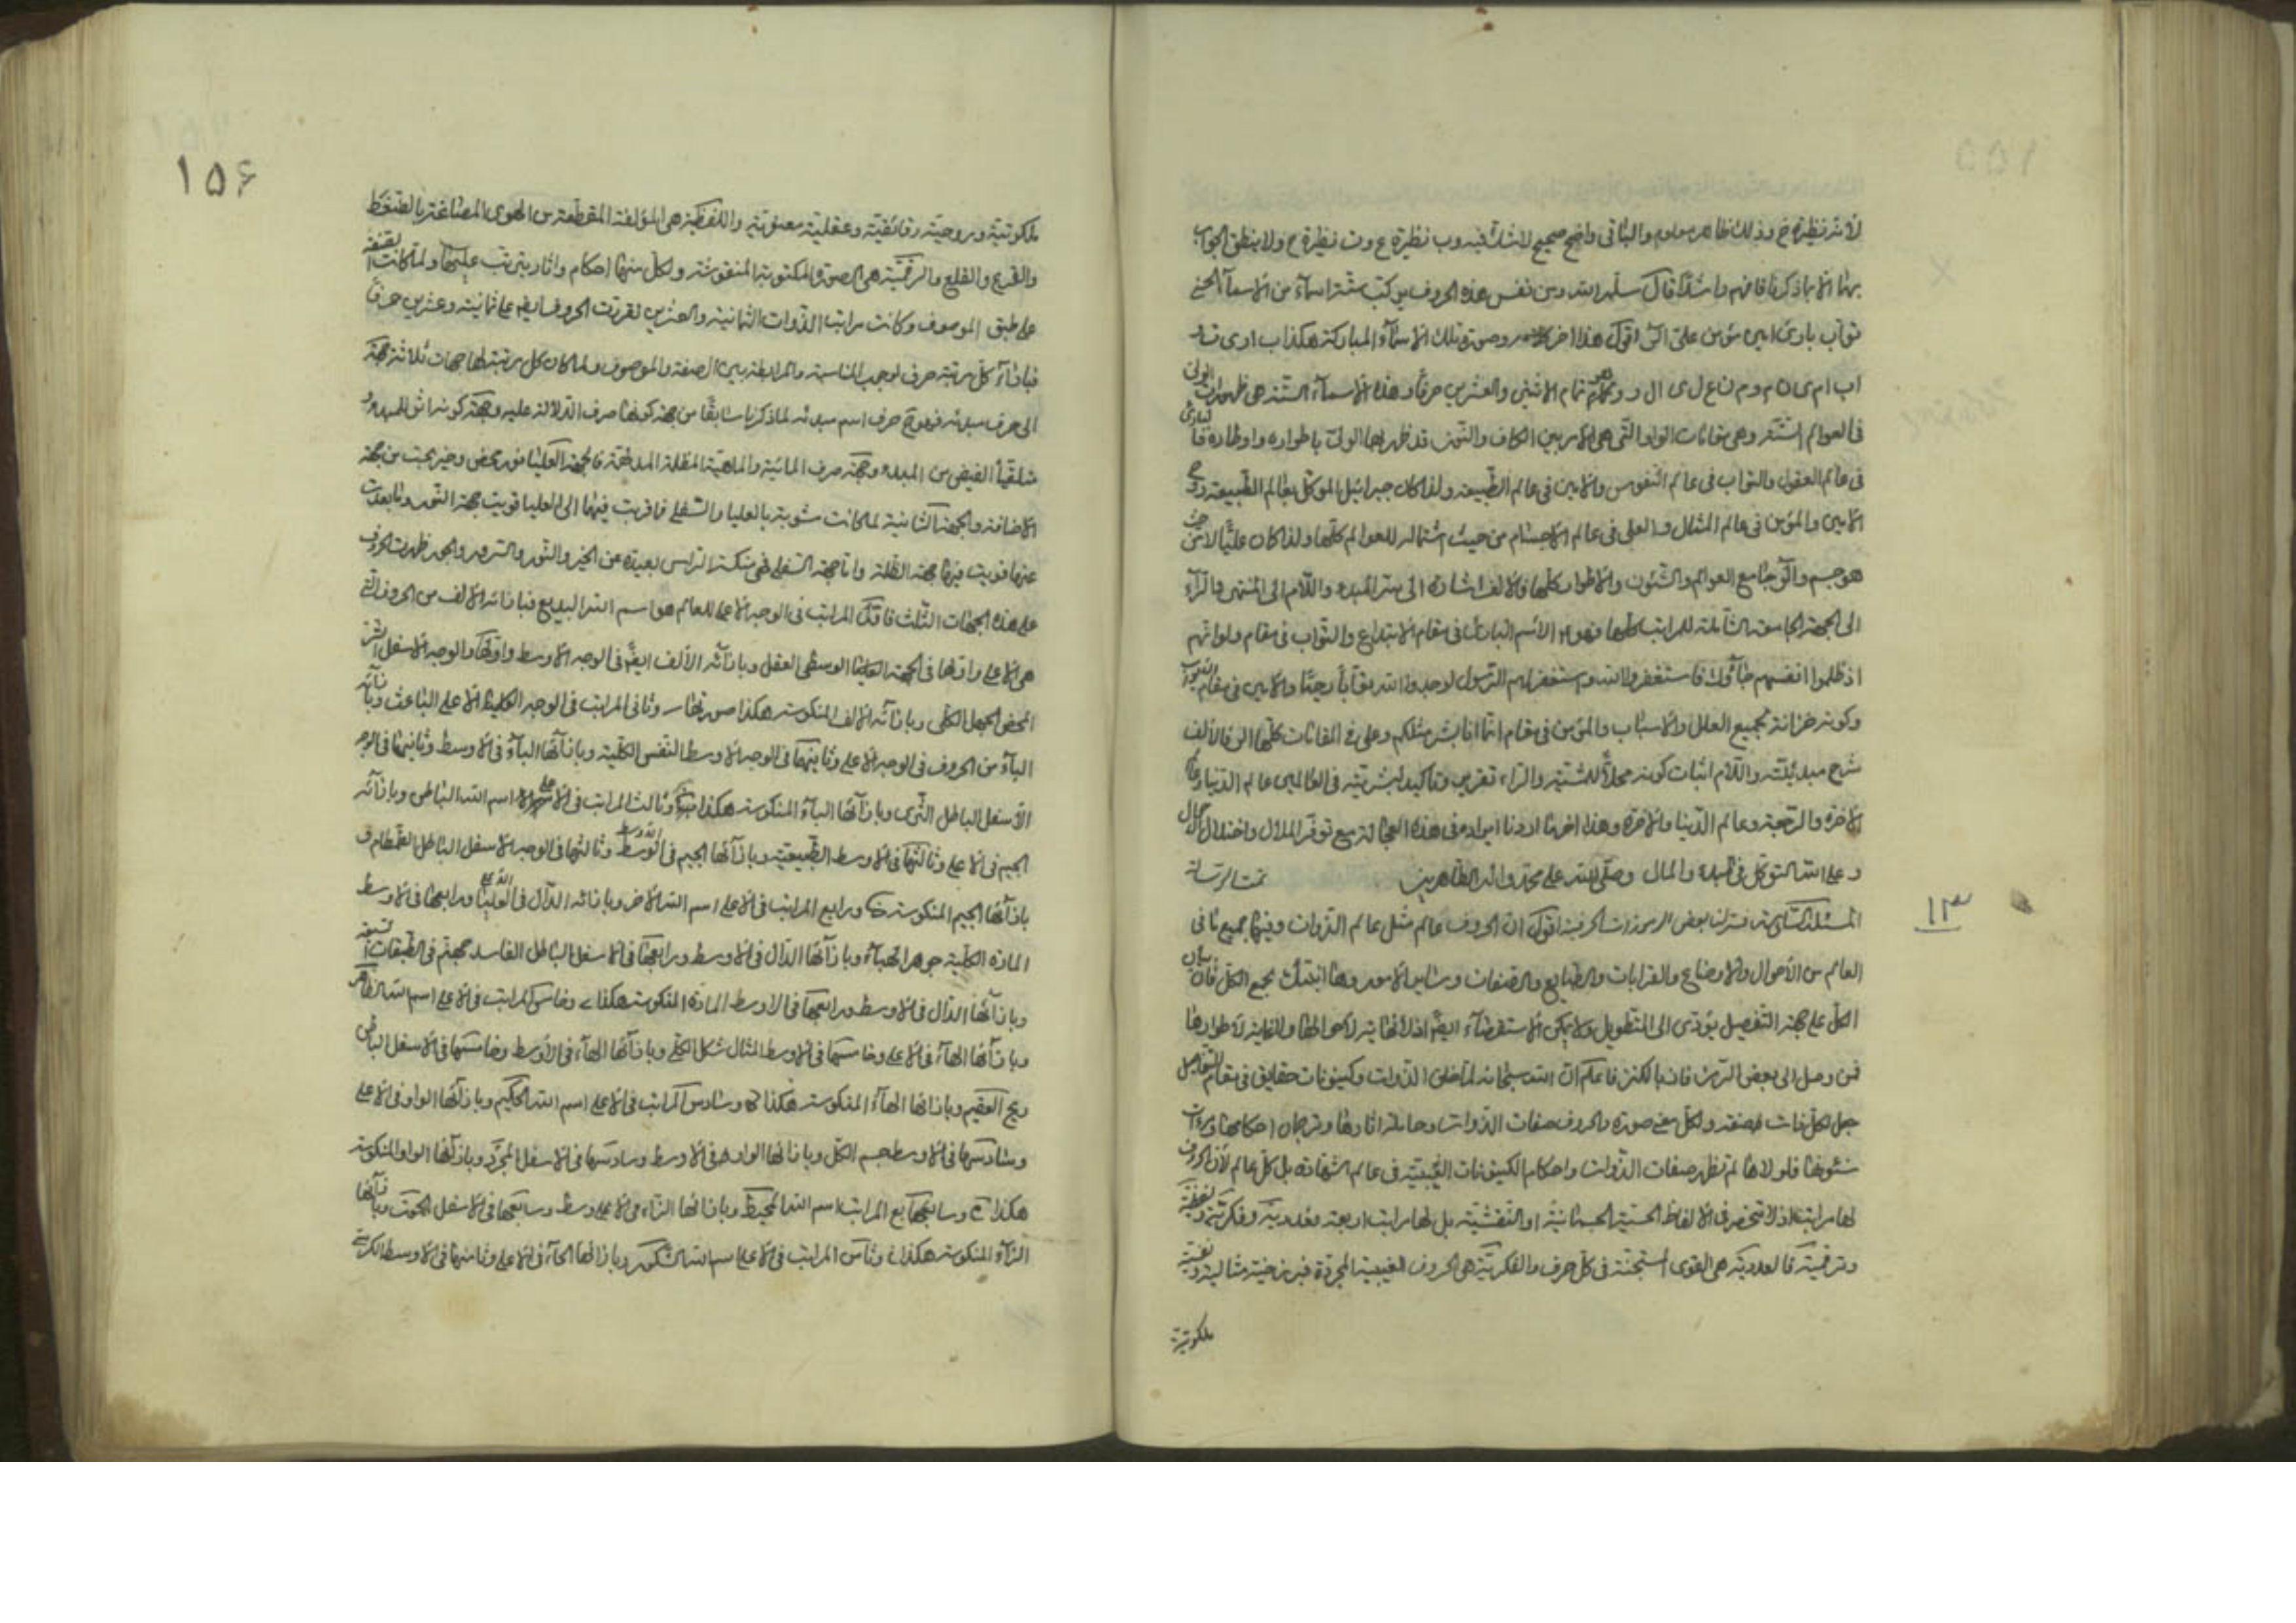 لأنه نظيرة خ وذلك ظاهر معلوم والباقى واضح صحيح لا شك فيه وب نظيرة ع وت نظيرة ح ولا ينطق الجواب
بهذا الا بما ذكرنا فافهم راشدا قال سلمه الله ومن نفس هذه الحروف يركب ستة اسماء من الاسماء الحسنى
تواب بارئ امين مؤمن على الر اقول هذا اخر وصورة تلك الاسماء المباركة هكذا ب ا ر ى ت و
ا ب ا م ى ن م و م ن ع ل ى ا ل ر وهو تمام الاثنين والعشرين حرفا وهذه الاسماء الستة هى ظهورات الولى
فى العوالم الستة وهى مقامات الواو التى هى الامر بين الكاف والنون قد ظهر بها الولى باطواره واوطاره فالبارئ
فى عالم العقول والتواب فى عالم النفوس والامين فى عالم الطبيعة ولذا كان جبرائيل الموكل بعالم الطبيعة روح
الامين والمؤمن فى عالم المثال والعلى فى عالم الاجسام من حيث اشتماله للعوالم كلها ولذا كان عليا لا من حيث
هو جسم والر جامع العوالم والشئون والاطوار كلها فالالف اشارة الى سر المبدء واللام الى المنتهى والراء
الى الجهة الجامعة الشاملة للمراتب كلها فهو الاسم البارئ فى مقام الابتداع والتواب فى مقام ولو انهم
اذ ظلموا انفسهم جاؤك فاستغفروا الله واستغفر لهم الرسول لوجدوا الله توابا رحيما والامين فى مقام
وكونه خزانة لجميع العلل والاسباب والمؤمن فى مقام انما انا بشر مثلكم وعلى فى المقامات كلها الر فالالف
شرح مبدئيته واللام اثبات كونه محلا للمشية والراء تقرير وتأكيد لبشريته فى العالمين عالم الدنيا وعالم
الاخرة والرجعة وعالم الدنيا والاخرة وهذا اخر ما اردنا ايراده فى هذه العجالة مع توفر الملال واختلال الحال
وعلى الله التوكل فى المبدء والمال وصلى الله على محمد واله الطاهرين تمت الرسالة
١٣
العالم من الاحوال والاوضاع والقرابات والطبايع والصفات وساير الامور
الكل على جهة التفصيل يؤدى الى التطويل ولا يمكن الاستقصاء ايضا اذ لا نهاية لاحوالها ولا غاية لاطوارها
فمن وصل الى بعض الرمز فاز بالكنز فاعلم ان الله سبحانه لما خلق الذوات وكينونات حقايق فى مقام التفاصيل
جعل لكل ذات صفة ولكل معنى صورة والحروف صفات الذوات وحاملة اثارها وترجمان احكامها
شئونها فلولاها لم تظهر صفات الذوات واحكام الكينونات الغيبية فى عالم الشهادة بل كل عالم لأن الحروف
لها مراتب اذ لا تنحصر فى الالفاظ الحسية الجسمانية او النقشية بل لها مراتب اربعة عددية وفكرية ولفظية
ورقمية فالعددية هى القوى المستجنة فى كل حرف والفكرية هى الحروف الغيبية المجردة فبرزخية مثالية ونفسية
ملكوتية
١٥٦
ملكوتية وروحية رقائقية وعقلية معنوية واللفظية هى المؤلفة المقطعة من الهوى المصاغة بالضغط
والقرع والقلع والرقمية هى الصورة المكتوبة المنقوشة ولكل منها احكام واثار يترتب عليها ولما كانت الصفة
على طبق الموصوف وكانت مراتب الذوات الثمانية والعشرين تقررت الحروف ايضا على ثمانية وعشرين حرفا
فبازاء كل مرتبة حرف لوجوب المناسبة والمرابطة بين الصفة والموصوف ولما كان كل مرتبة لها جهات ثلاثة جهة
الى حرف مبدئه فهو ح حرف اسم مبدئه لما ذكرنا سابقا من جهة كونها صرف الدلالة عليه وجهة كونه اثرا للمبدء
متلقيا الفيض من المبدء وجهة صرف المائية والماهية المظلمة المدلهمة فالجهة العليا نور محض وخير بحت من جهة
الاضافة والجهة الثانية لما كانت مشوبة بالعليا والسفلى فما قربت فيها الى العليا قويت جهة النور وما بعدت
عنها قويت فيها جهة الظلمة واما جهة السفلى فهى منكسة الراس بعيدة عن الخير والنور والسرور والحرف ظهرت الحروف
على هذه الجهات الثلث فاول المراتب فى الوجه الاعلى للعالم هو اسم الله البديع فبازائه الالف من الحروف التى
هى الاعلى واولها فى الجهة الوسطى العقل وبازائه الالف ايضا فى الوجه الاوسط واولها والوجه الاسفل
المحض الجهل الكلى وبازائه الالف المنكوسة هكذا صورتها وثانى المراتب فى الوجه الاعلى الباعث وبازائه
الباء من الحروف فى الوجه الاعلى وثانيتها فى الوجه الاوسط النفس الكلية وبازائها الباء فى الاوسط وثانيها فى الوجه
الاسفل الباطل الثرى وبازائها الباء المنكوسة هكذا وثالث المراتب فى الاعلى اسم الله الباطن وبازائه
الجيم فى الاعلى وثالثها فى الاوسط الطبيعة وبازائها الجيم فى الاوسط وثالثها فى الوجه الاسفل الباطل الطمطام و
بازائها الجيم المنكوسة ورابع المراتب فى الاعلى اسم الله الاخر وبازائه الدال فى العليا ورابعها فى الاوسط
المادة الكلية جوهر الهباء وبازائها الدال فى الاوسط ورابعها فى الاسفل الباطل الفاسد جهنم فى الطبقات السبعة
وبازائها الدال فى الاوسط ورابعها فى الاوسط المادة المنكوسة هكذا وخامس المراتب فى الاعلى اسم الله الظاهر
وبازائها الهاء فى الاعلى وخامسها فى الاوسط المثال شكل الكل وبازائها الهاء فى الاوسط وخامسها فى الاسفل الباطل
ريح العقيم وبازائها الهاء المنكوسة هكذا وسادس المراتب فى الاعلى اسم الله الحكيم وبازائها الواو فى الاعلى
وسادسها فى الاوسط جسم الكل وبازائها الواو فى الاوسط وسادسها فى الاسفل وبازائها الواو المنكوسة
هكذا وسابع المراتب اسم الله المحيط وبازائها الزاء فى الاعلى وسابعها فى الاسفل الحوت وبازائها
الزاء المنكوسة هكذا وثامن المراتب فى الاعلى اسم الله الشكور وبازائها الحاء فى الاعلى وثامنها فى الاوسط الكرسى